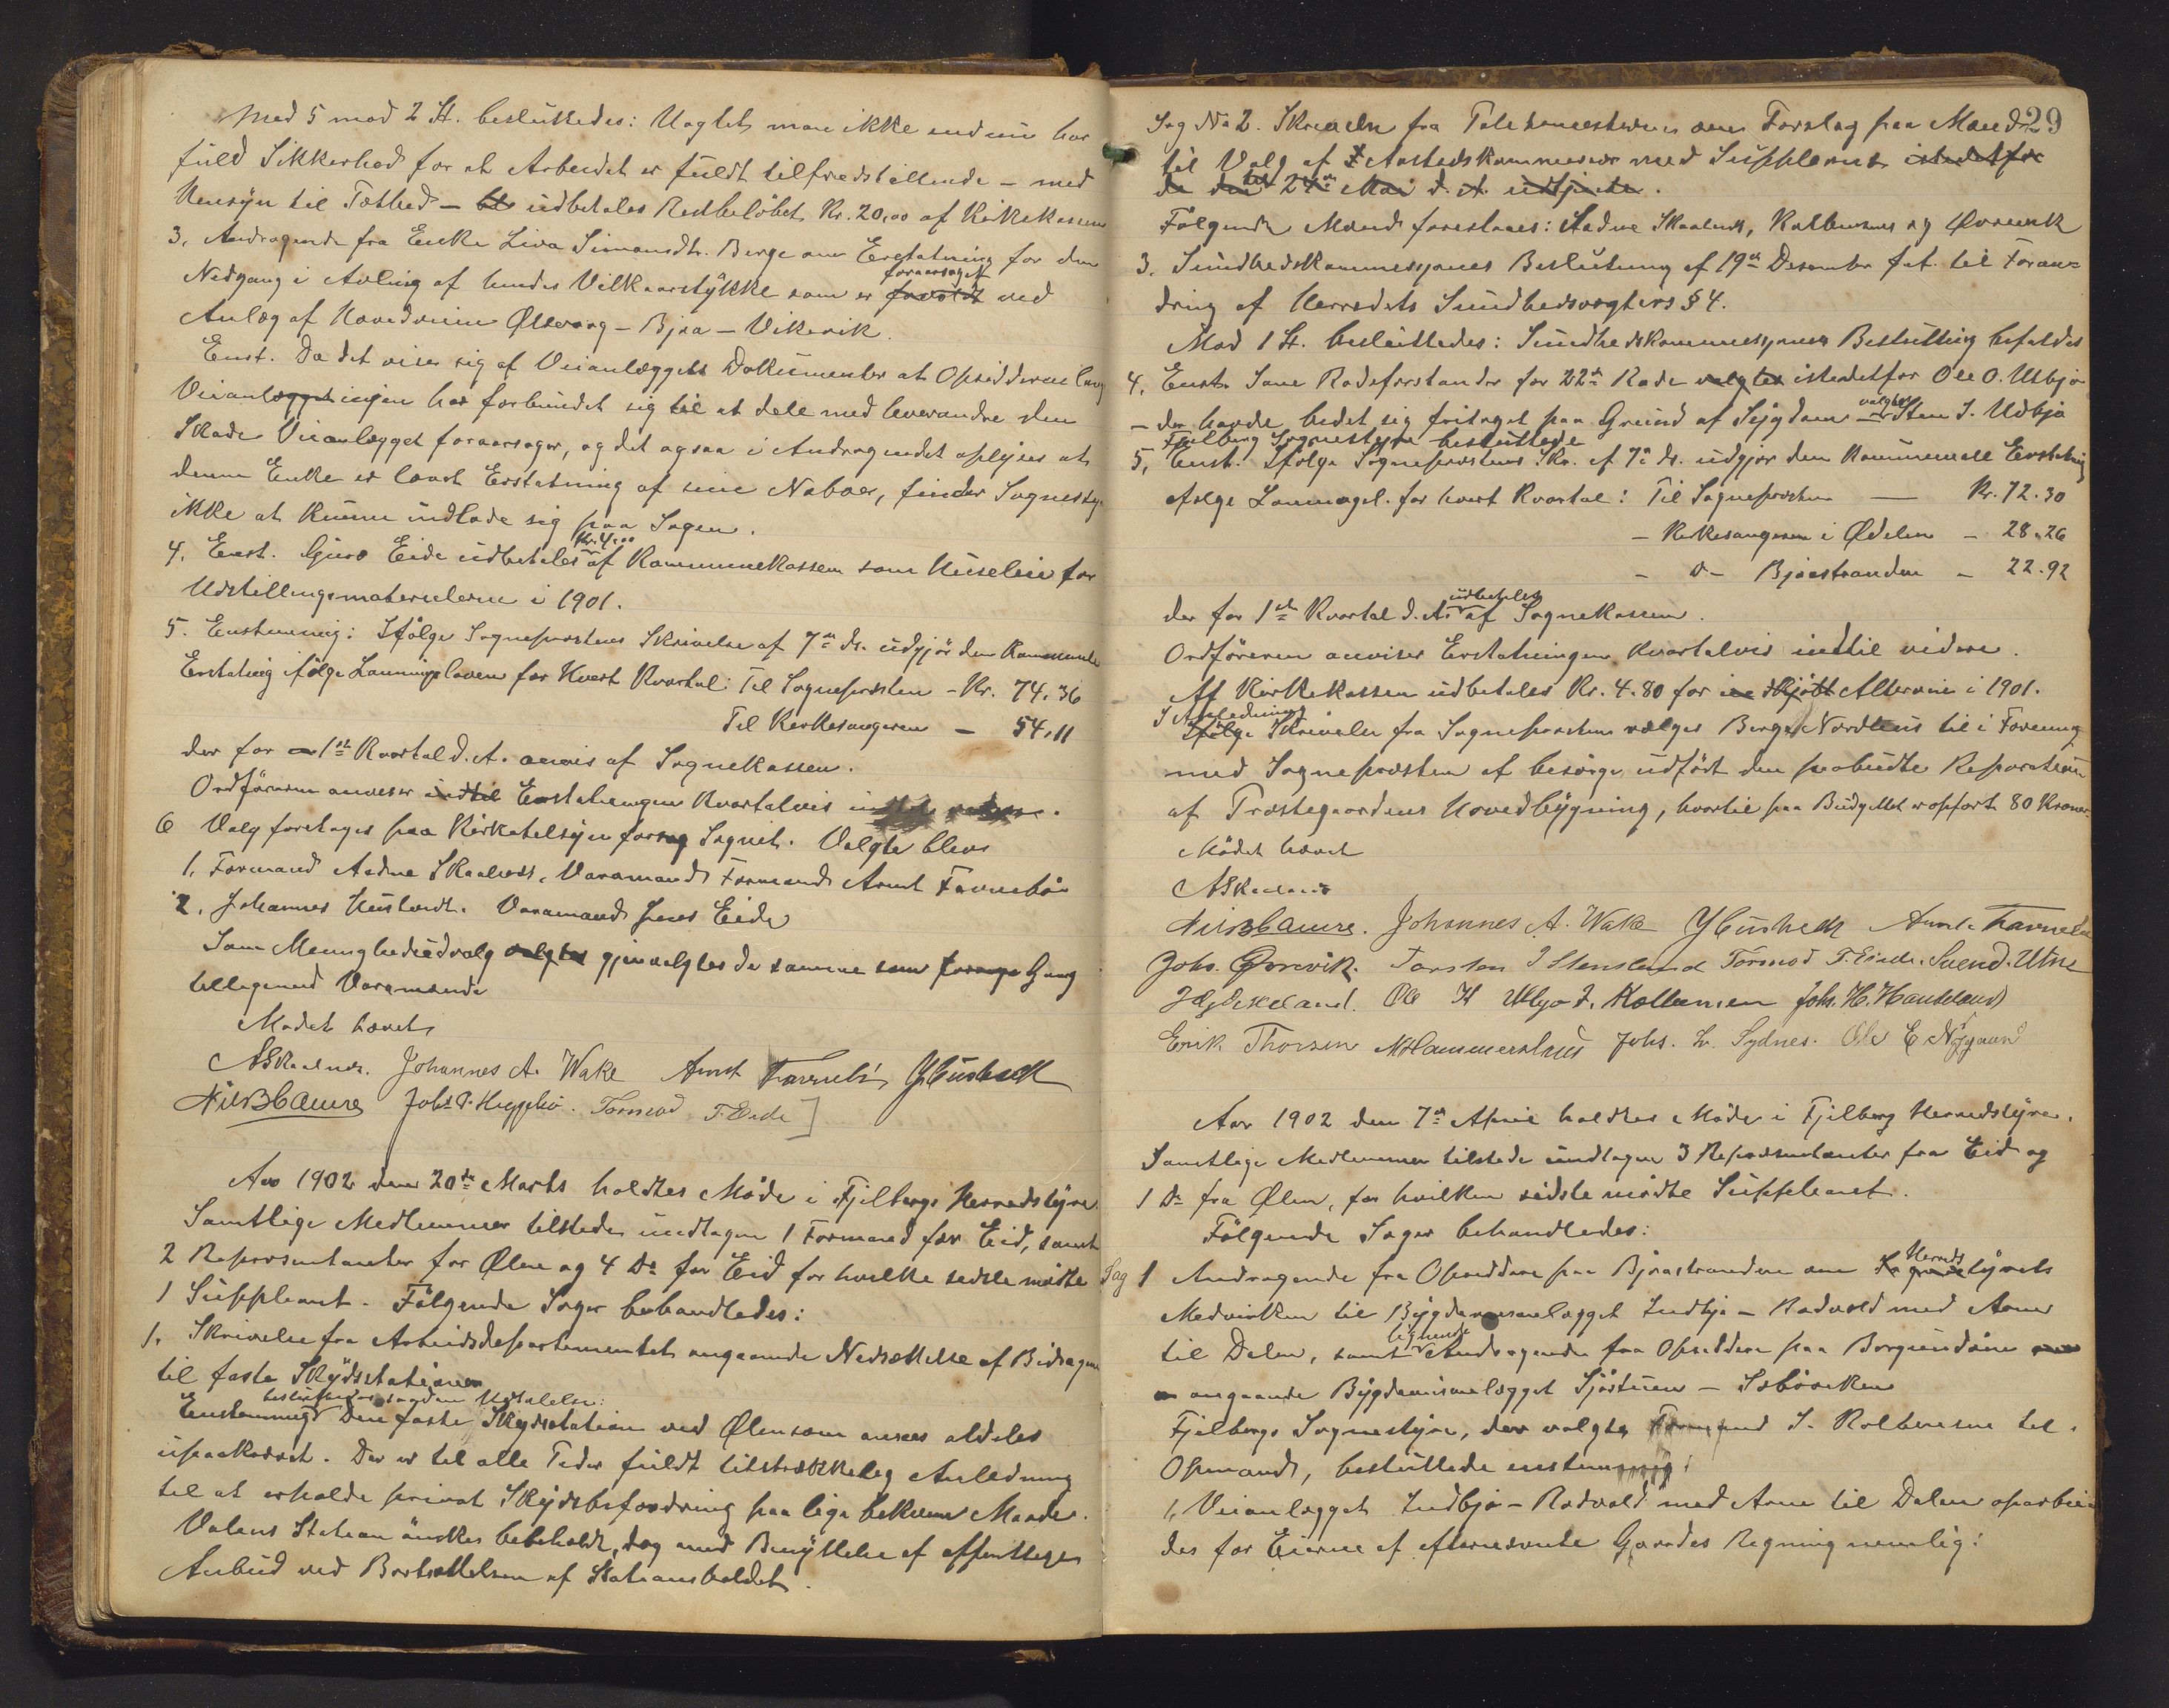 Med 5 mod 2 St. besluttedes: Uagtet man ikke endnu har
fuld Sikkerhed for at Arbeidet er fuldt tilfredstillende - med
Hensyn til Tæthed - udbetales Restbeløbet Kr. 20,00 af Kirkekassen
3. Andragende fra Enke Liva Simonsdtr. Berge om Erstatning for den
Nedgang i Avling af hendes Vilkaarstykke som er forvoldt foraarsaget ved
Anlæg af Hovedveien Ølsvaag - Bjoa - Vikevik.
Enst. Da det viser sig af Veianlæggets Dokumenter at Opsidderne lang
Veianlægget har forbundet sig til at dele med hverandre den
Skade Veianlægget foraarsager, og det ogsaa i Andragendet oplyses at
denne Enke er lovet Erstatning af sine Naboer, finder Sognesty-
ikke at kunne indlade sig paa Sagen.
4. Enst. Guro Eide udbetales Kr. 4,00 af Kommunekassen som Husleie for
Udstillingsmaterielerne i 1901.
5. Enstemmig: Ifølge Sogneprestens Skrivelse af 7de ds. udgjør den Kommunale
Erstatning ifølge Lønningsloven for hvert Kvartal: Til Sognepresten - Kr. 74,36
Til Kirkesangeren - 54,11
der for 1ste Kvartal d. A. anvis af Sognekassen.
Ordføreren anviser indtil Erstatningen Kvartalvis indtil videre.
6 Valg foretages paa Kirketilsyn for Sognet. Valgte blev
1. Formand Aadne Skaalnes, Varamand Formand Arnt Favnebø
2. Johannes Husteidt. Varamand Jens Eide
Som Menighedsudvalg valgtes gjenvalgtes de samme som forrige Gang
tilligemed Varamænd
Mødet hævet
ASkaalnes. Johannes A. Wake Arnt Favnebø
Nils B Caure Johs P. Heggebø. Tormod T. Eide
Aar 1902 den 20de Marts holdtes Møde i Fjelbergs Herredstyre.
Samtlige Medlemmer tilstede undtagen 1 Formand for Eid, samt
2 Repræsentanter for Ølen og 4 Do for Eid for hvilke sidste mødte
1 Suppleant. Følgende Sager behandledes:
1. Skrivelse fra Arbeidsdepartementet angaaende Nedsættelse af Bidragene
til faste Skydsstationer
besluttedes saadan Udtalelse:
Enstemmig Den faste Skydsstation ved Ølen som ansees aldeles
upaakrævet. Der er til alle Tider fuldt tilstrækkelig Anledning
til at erholde privat Skydsbefordring paa lige bekvem Maade.
Valens Station ønskes bibeholdt, dog med Benyttelse af offentlige
Anbud ved Bortsættelsen af Stationsholdet.
29
Sag No 2. Skrivelse fra om Forslag paa Mænd
til Valg af Aastedskommissær med Suppleant istedetfor
de den 24de Mai d. A. udtjente.
Følgende Mænd foreslaaes: Aadne Skaalnes, Kolbensens og Øvrevik
3. Sundhedskommissjonens Beslutning af 19de Desember f. A. til Foran-
dring af Herredets Sundhedsvægters § 4.
Mod 1 St. besluttedes: Sundhedskommissjonens Beslutning befaldes
4. Enst. Som Rodeforstander for 22de Rode valgtes istedetfor Ole O. Utbjo
- der havde bedet sig fritaget paa Grund af Sygdom valgtes Sten J. Utbjo
Fjelberg Sognestyre besluttede
5. Enst. Ifølge Sogneprestens Skr. af 7de ds. udgjør den Kommunale Erstatning
ifølge Lønningsl. for hvert Kvartal: Til Sognepresten - Kr. 72.30
- Kirkesangeren i Ødelen - 28.26
- Do - Bjoastranden - 22.92
der for 1ste Kvartal d. A. udbetales af Sognekassen.
Ordføreren anviser Erstatningen Kvartalvis indtil videre.
Af Kirkekassen udbetales Kr. 4.80 for indkjøbt Altervin i 1901.
I Anledning
Ifølge Skrivelse fra Sognepresten vælges Berge Nordhus til i Forening
med Sognepresten at besørge udført den paabudte Reparation
af Præstegaardens Hovedbygning, hvortil paa Budgettet er opført 80 Kroner.
Mødet hævet
ASkaalnes
Nils B Caure. Johannes A. Wake Arnt Favnebø
Johs. Øvrevik. Torsten J Stensland Tormod T. Eide. Svend. Utne
Ole H Utbjo J. Kolbensen Johs. H. Haukeland
Erik Thorsen M Hammershus Johs. Sydnes. Ole E Nygaard
Aar 1902 den 7de April holdtes Møde i Fjelberg Herredstyre.
Samtlige Medlemmer tilstede undtagen 3 Repræsentanter fra Eid og
1 Do fra Ølen, for hvilken sidste mødte Suppleant.
Følgende Sager behandledes:
Sag 1 Andragende fra Opsiddere paa Bjoastranden om Herredstyrets
Medvirken til Bygdeveisanlægget Indbjo - Rødvold med Arm
til Dalen, samt lignende Andragende fra Opsiddere paa Borgundøen
angaaende Bygdeveisanlægget Sjøstuen - Isbøveken
Fjelbergs Sognestyre, der valgte Formand S. Kolbensens til
Opmand, besluttede enstemmig:
1. Veianlægget Indbjo - Rødvold med Arm til Dalen oparbei-
des for Eierne af efternevnte Gaardes Regning nemlig: